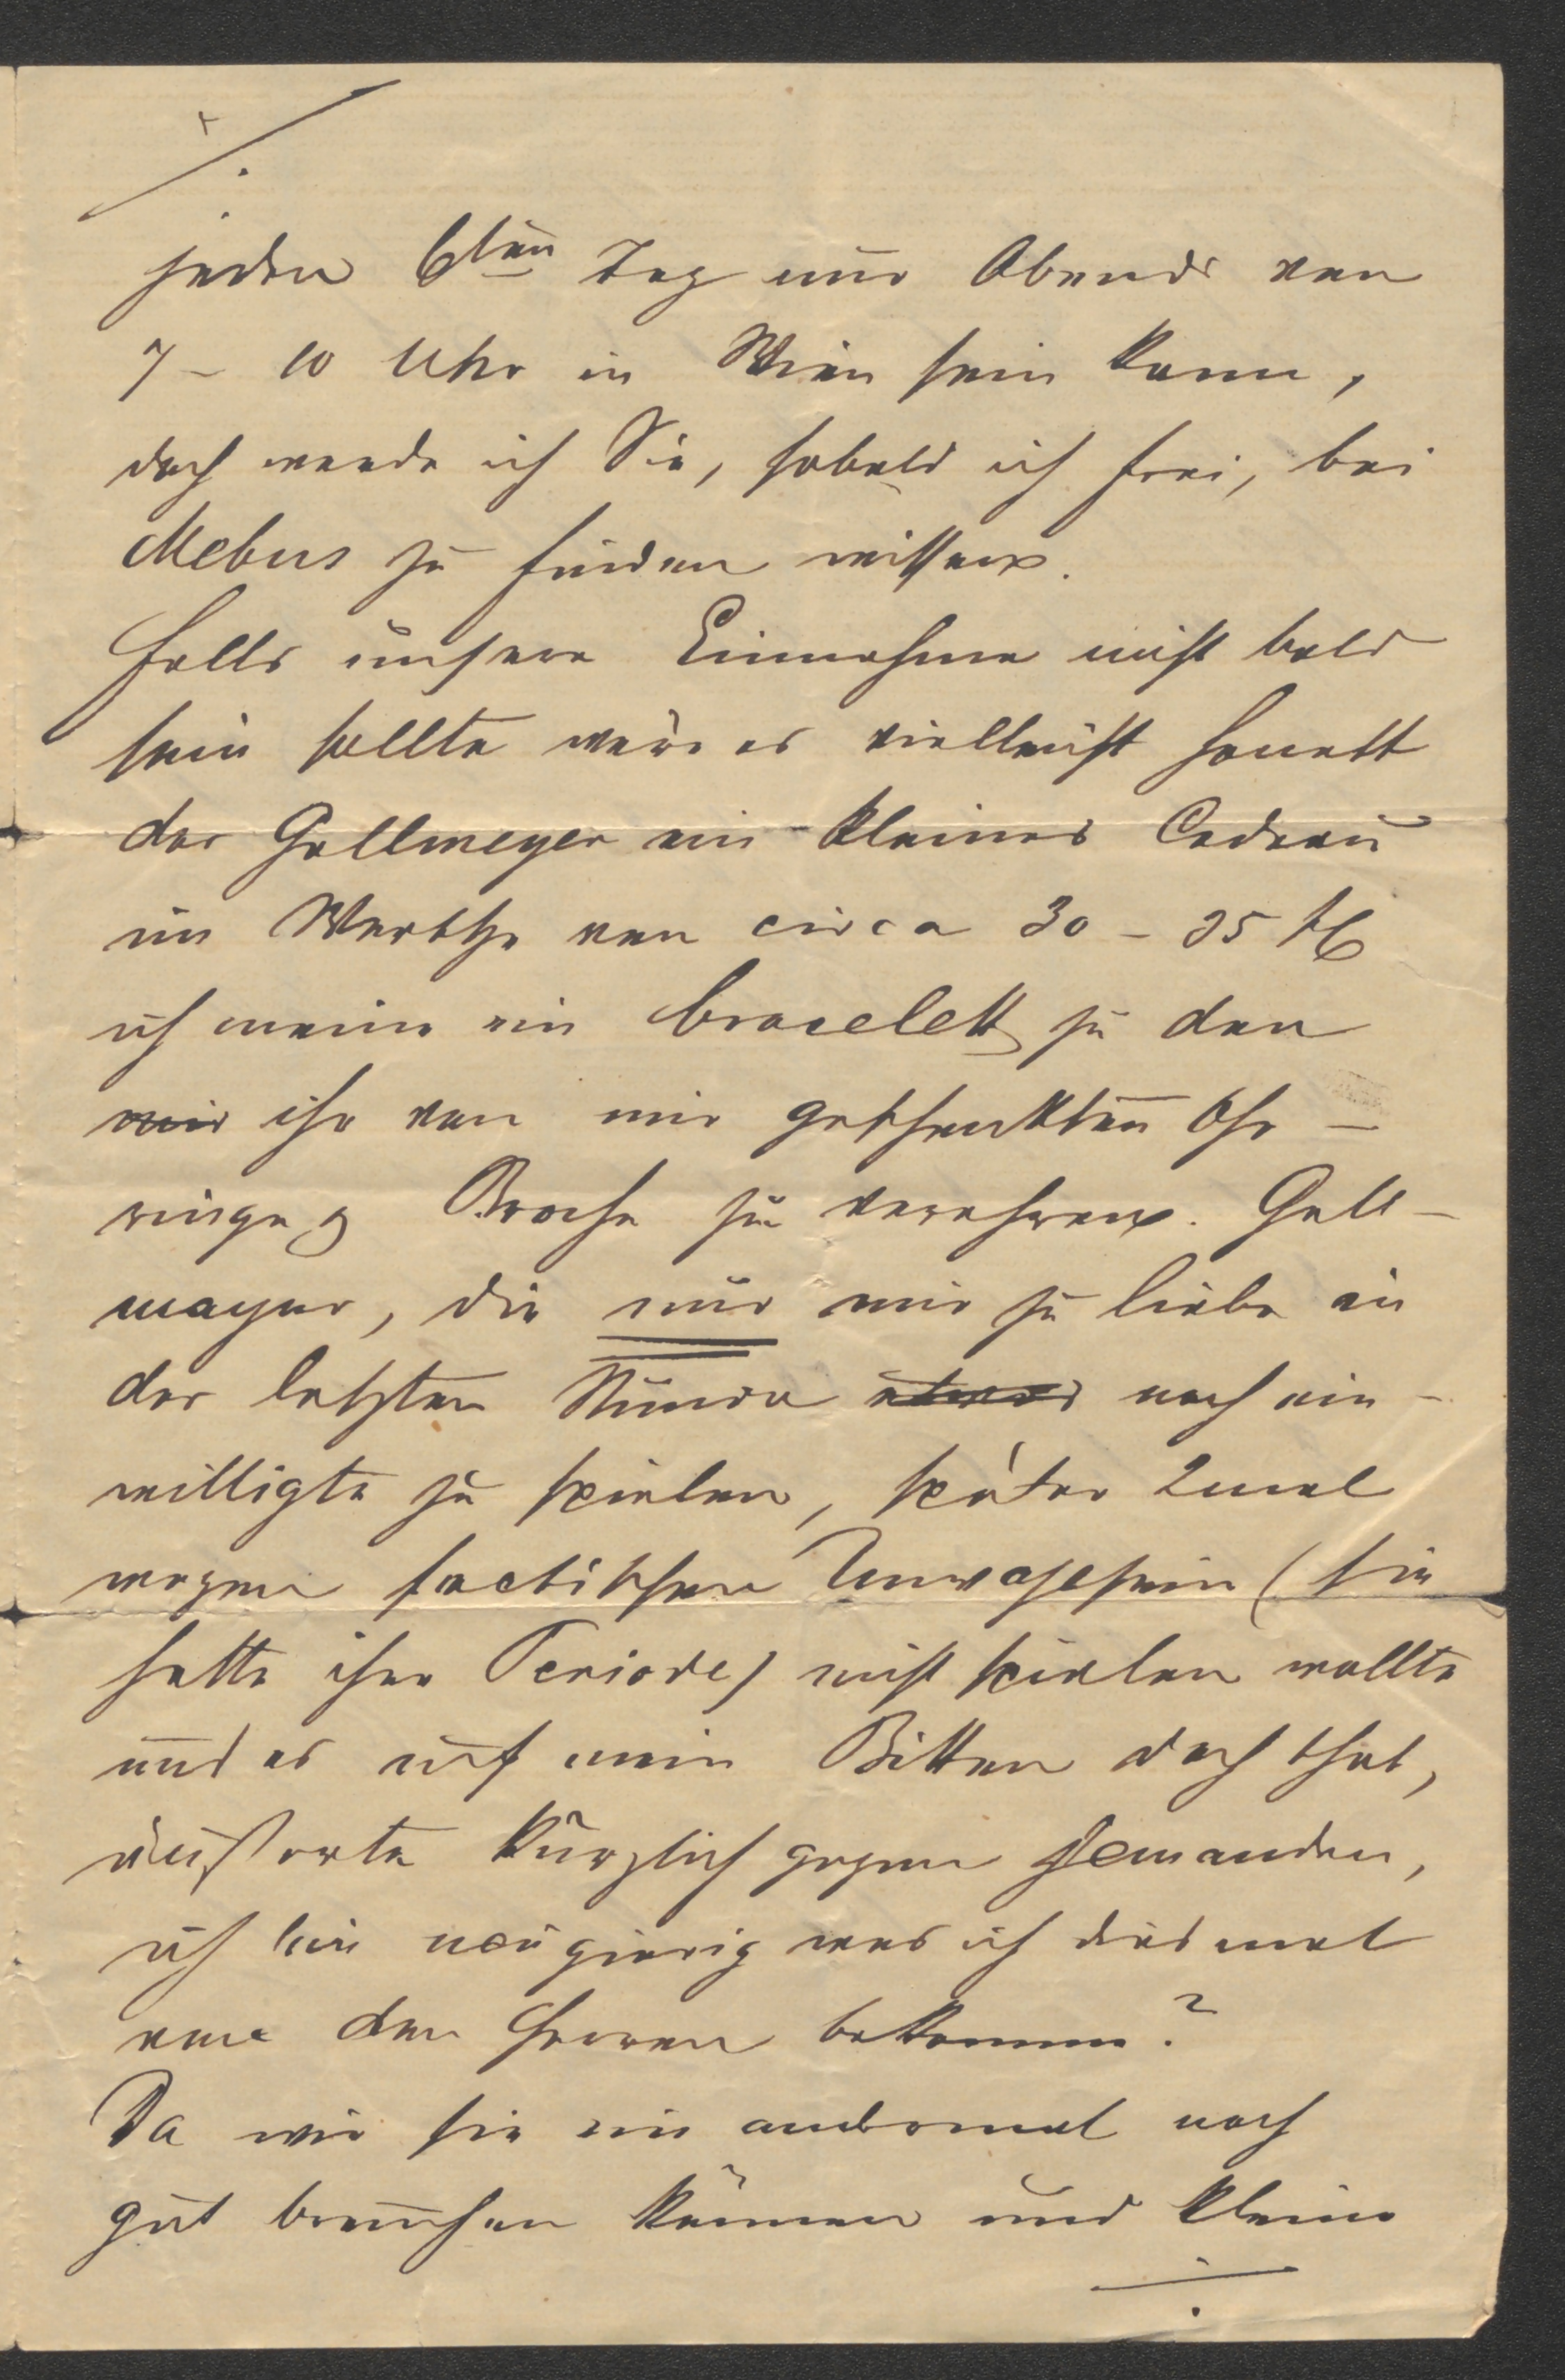 ./.
jeden 6ten Tag nur Abends von
7 – 10 Uhr in Wien sein kann,
doch werde ich Sie, sobald ich frei, bei
Mebus zu finden wissen.
Falls unsere Einnahme nicht bald
sein sollte wäre es vielleicht honett
der Gallmeyer ein kleines Cadeau
im Werthe von circa 30 – 35 fl
ich meine ein bracelett zu den
mir ihr von mir geschenkten Ohr –
ringe & Broche zu verehren. Gall –
mayer, die nur mir zu liebe in
der letzten Stunde etwas noch ein –
willigte zu spielen, später 2mal
wegen factischen Unwohlsein (sie
hatte ihre Periode) nicht spielen wollte
und es auf mein Bitten doch that,
äußerte kürzlich gegen Jemanden,
ich bin neugierig was ich diesmal
von den Herren bekomme?
Da wir sie ein andermal noch
gut brauchen können und kleine
./.